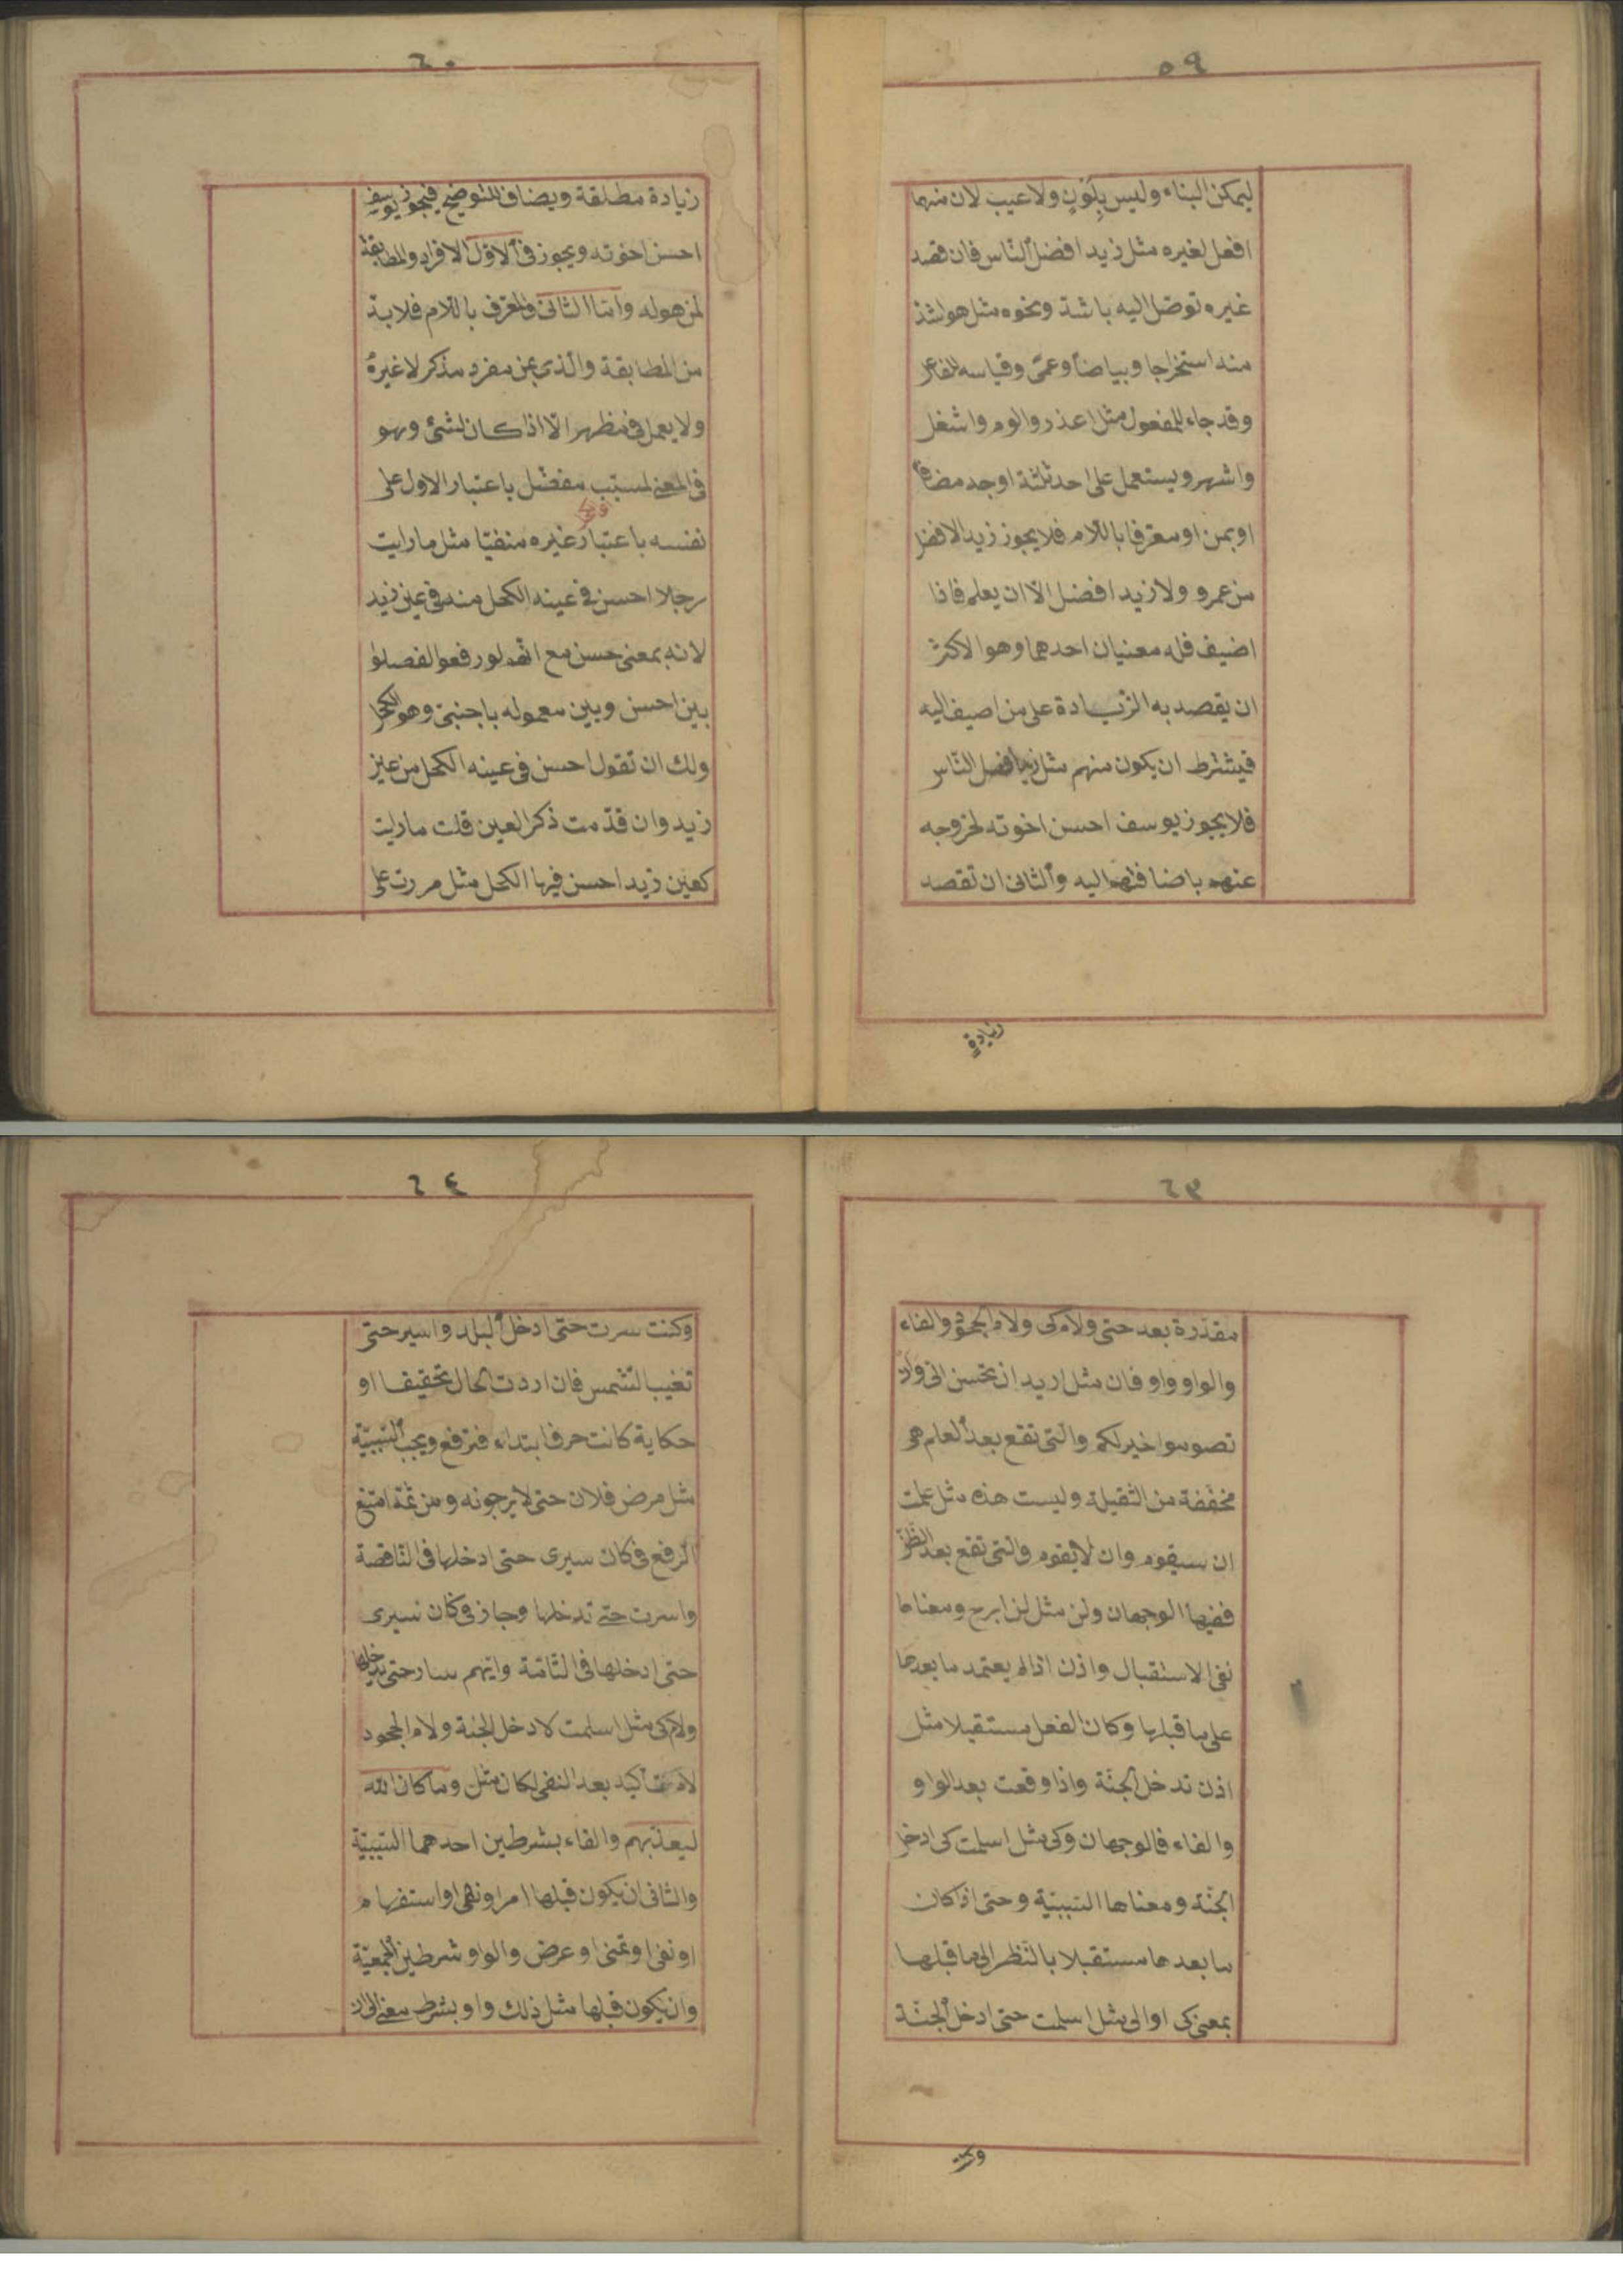 ٥٩
ليمكن البناء وليس بِلَوْنٍ ولا عيب لان منهما
افعل لغيره مثل زيد افضل النّاس فان قصد
غيره توصّل اليه باشدّ ونحوه مثل هو اشدّ
منه استخراجا وبياضًا وعمًى وقياسه للفاعل
وقد جاء للمفعول مثل اعذر والوم واشغل
واشهر ويستعمل على احد ثلثة اوجه مضافا
او بمن او معرّفا باللّام فلا يجوز زيد الافضل
من عمرو ولا زيد افضل الّا ان يعلم فاذا
اضيف فله معنيان احدهما وهو الاكثر
ان يقصد به الزّيادة على من اضيف اليه
فيشترط ان يكون منهم مثل زيد افضل النّاس
فلا يجوز يوسف احسن اخوته لخروجه
عنهم باضافتهم اليه والثانى ان تقصد
زيادة
٦٠
زيادة مطلقة ويضاف للتوضيح فيجوز يوسف
احسن اخوته ويجوز فى الاوّل الافراد والمطابقة
لمن هو له وامّا الثانى والمعرّف باللّام فلا بدّ
من المطابقة والّذى بمن مفرد مذكر لا غيرُ
ولا يعمل فى مظهر الّا اذا كان لشئ وهو
فى المعنى لمسبّب مفضّل باعتبار الاول على
نفسه باعتبار غيره منفيّا مثل ما رايت
رجلا احسن فى عينه الكحل منه فى عين زيد
لانه بمعنى حسن مع انّهم لو رفعوا لفصلوا
بين احسن وبين معموله باجنبىّ وهو الكحل
ولك ان تقول احسن فى عينه الكحل من عين
زيد وان قدّمت ذكر العين قلت ما رايت
كعين زيد احسن فيها الكحل مثل مررت على
٦٣
مقدّرة بعد حتى ولام كى ولام الجحود والفاء
والواو واو فان مثل اريد ان تحسن الى وان
تصوموا خير لكم والّتى تقع بعد العلم هى
مخفّفة من الثقيلة وليست هذه مثل علمت
ان سيقوم وان لا يقوم والّتى تقع بعد الظّنّ
ففيها الوجهان ولن مثل لن ابرح ومعناها
نفى الاستقبال واذن اذا لم يعتمد ما بعدها
على ما قبلها وكان الفعل مستقبلا مثل
اذن تدخل الجنّة واذا وقعت بعد الواو
والفاء فالوجهان وكى مثل اسلمت كى ادخل
الجنّة ومعناها السّببيّة وحتى اذا كان
ما بعدها مستقبلا بالنّظر الى ما قبلها
بمعنى كى او الى مثل اسلمت حتى ادخل الجنّة
وكنت
٦٤
وكنت سرت حتى ادخل البلد واسير حتى
تغيب الشّمس فان اردت الحال تحقيقا او
حكاية كانت حرف ابتداء فترفع ويجب السّببيّة
مثل مرض فلان حتى لا يرجونه ومن ثمّة امتنع
الرّفع فى كان سيرى حتى ادخلها فى النّاقصة
واسرت حتى تدخلها وجاز فى كان سيرى
حتى ادخلها فى التّامّة وايّهم سار حتى يدخلها
ولام كى مثل اسلمت لادخل الجنّة ولام الجحود
لام تأكيد بعد النفى لكان مثل وما كان الله
ليعذّبهم والفاء بشرطين احدهما السّببيّة
والثانى ان يكون قبلها امر او نهى او استفهام
او نفى او تمنى او عرض والواو شرطين الجمعيّة
وان يكون قبلها مثل ذلك واو بشرط معنى الى ان